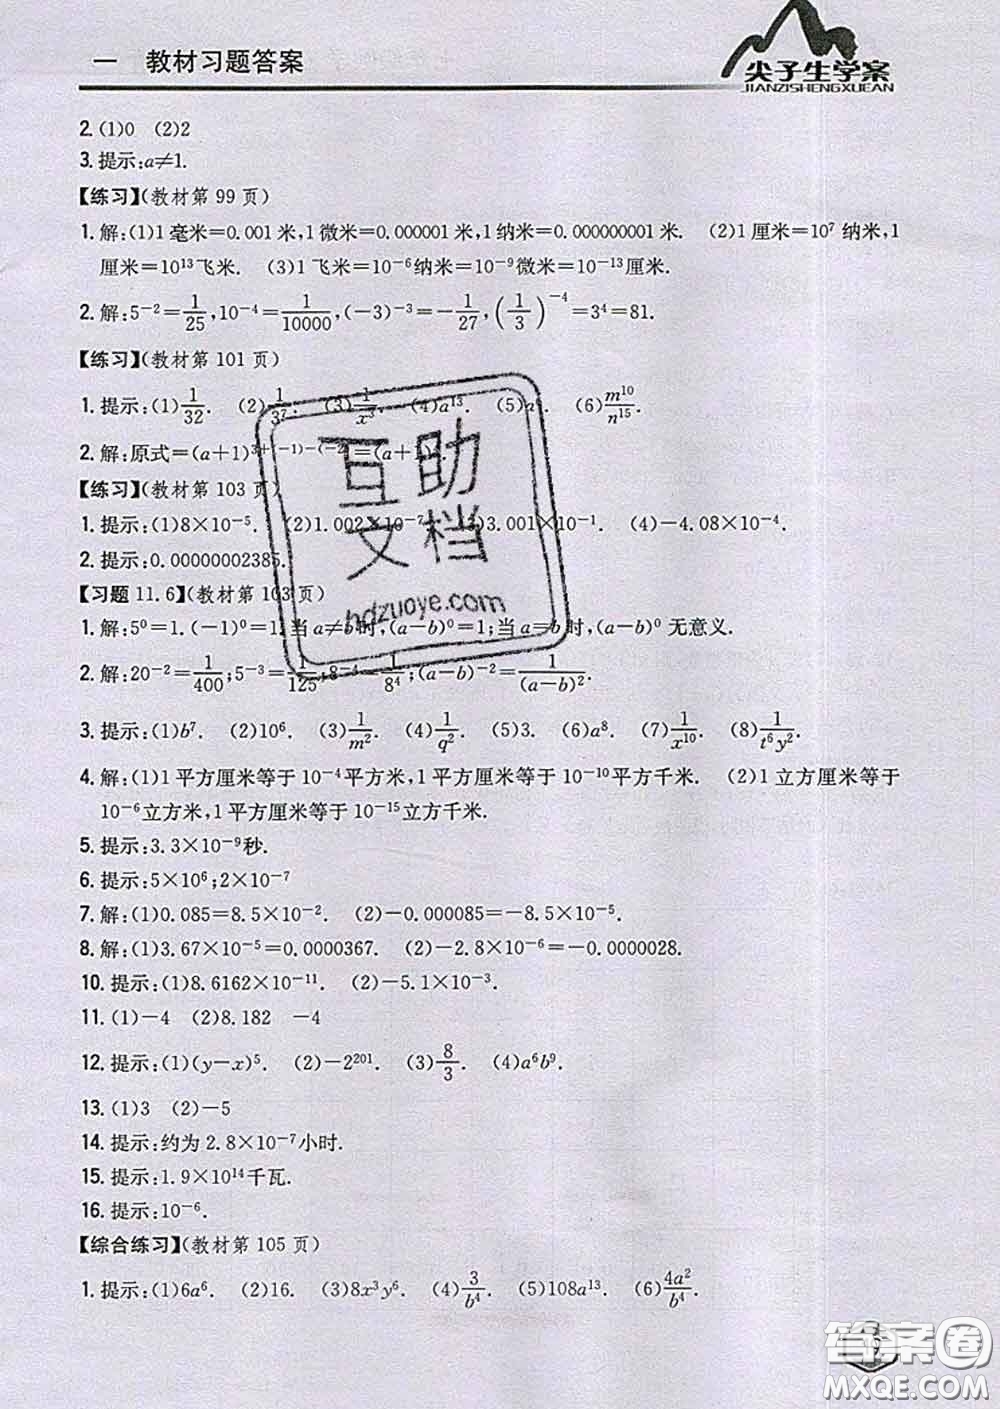 一 教材习题答案
尖子生学案
JIANZISHENGXUEAN
2. (1)0 (2)2
3. 提示:a≠1.
【练习】(教材第 99 页)
1. 解:(1)1 毫米=0.001 米,1 微米=0.000001 米,1 纳米=0.000000001 米. (2)1 厘米=10⁷ 纳米,1
厘米=10¹³飞米. (3)1 飞米=10⁻⁶纳米=10⁻⁹微米=10⁻¹³厘米.
2. 解:5⁻²=1/25,10⁻⁴=1/10000,(-3)⁻³=-1/27,(1/3)⁻⁴=3⁴=81.
【练习】(教材第 101 页)
1. 提示:(1)1/32. (2)1/3⁷. (3)1/x³. (4)a¹³. (5) (6)m¹⁰/n¹⁵.
2. 解:原式=(a+1)
【练习】(教材第 103 页)
1. 提示:(1)8×10⁻⁵. (2)1.002×10⁻⁷. (3)3.001×10⁻¹. (4)-4.08×10⁻⁴.
2. 提示:0.00000002385.
【习题 11.6】(教材第 103 页)
1. 解:5⁰=1.(-1)⁰=1.当 a≠b 时,(a-b)⁰=1;当 a=b 时,(a-b)⁰ 无意义.
2. 解:20⁻²=1/400;5⁻³=1/125;8⁻⁴=1/8⁴;(a-b)⁻²=1/(a-b)².
3. 提示:(1)b⁷. (2)10⁶. (3)1/m². (4)1/q². (5)3. (6)a⁸. (7)1/x¹⁰. (8)1/t⁶y².
4. 解:(1)1 平方厘米等于 10⁻⁴平方米,1 平方厘米等于 10⁻¹⁰平方千米. (2)1 立方厘米等于
10⁻⁶立方米,1 平方厘米等于 10⁻¹⁵立方千米.
5. 提示:3.3×10⁻⁹秒.
6. 提示:5×10⁶;2×10⁻⁷
7. 解:(1)0.085=8.5×10⁻². (2)-0.000085=-8.5×10⁻⁵.
8. 解:(1)3.67×10⁻⁵=0.0000367. (2)-2.8×10⁻⁶=-0.0000028.
10. 提示:(1)8.6162×10⁻¹¹. (2)-5.1×10⁻³.
11. (1)-4 (2)8.182 -4
12. 提示:(1)(y-x)⁵. (2)-2²⁰¹. (3)8/3. (4)a⁶b⁹.
13. (1)3 (2)-5
14. 提示:约为 2.8×10⁻⁷小时.
15. 提示:1.9×10¹⁴千瓦.
16. 提示:10⁻⁶.
【综合练习】(教材第 105 页)
1. 提示:(1)6a⁶. (2)16. (3)8x³y⁶. (4)3/b⁴. (5)108a¹³. (6)4a²/b⁴.
互助
文档
hdzuoye.com
答案圈
MXQE.COM